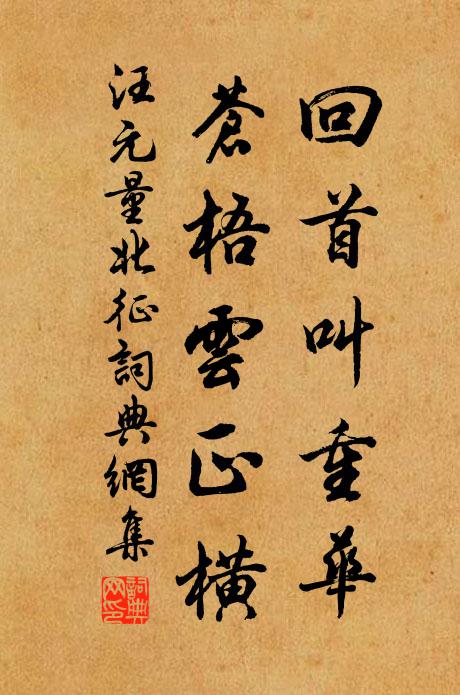 回首叫重華
蒼梧雲正橫
汪元量北征詞典網集
詞典網印